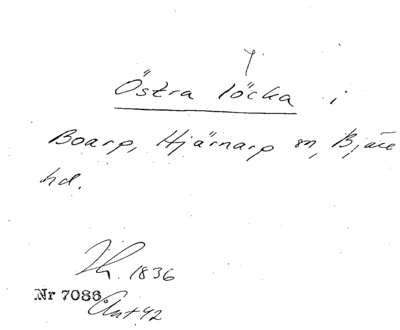 Östra löcka i
Boarp, Hjärnarp sn, Bjäre
hd.
1836
Nr 7086.